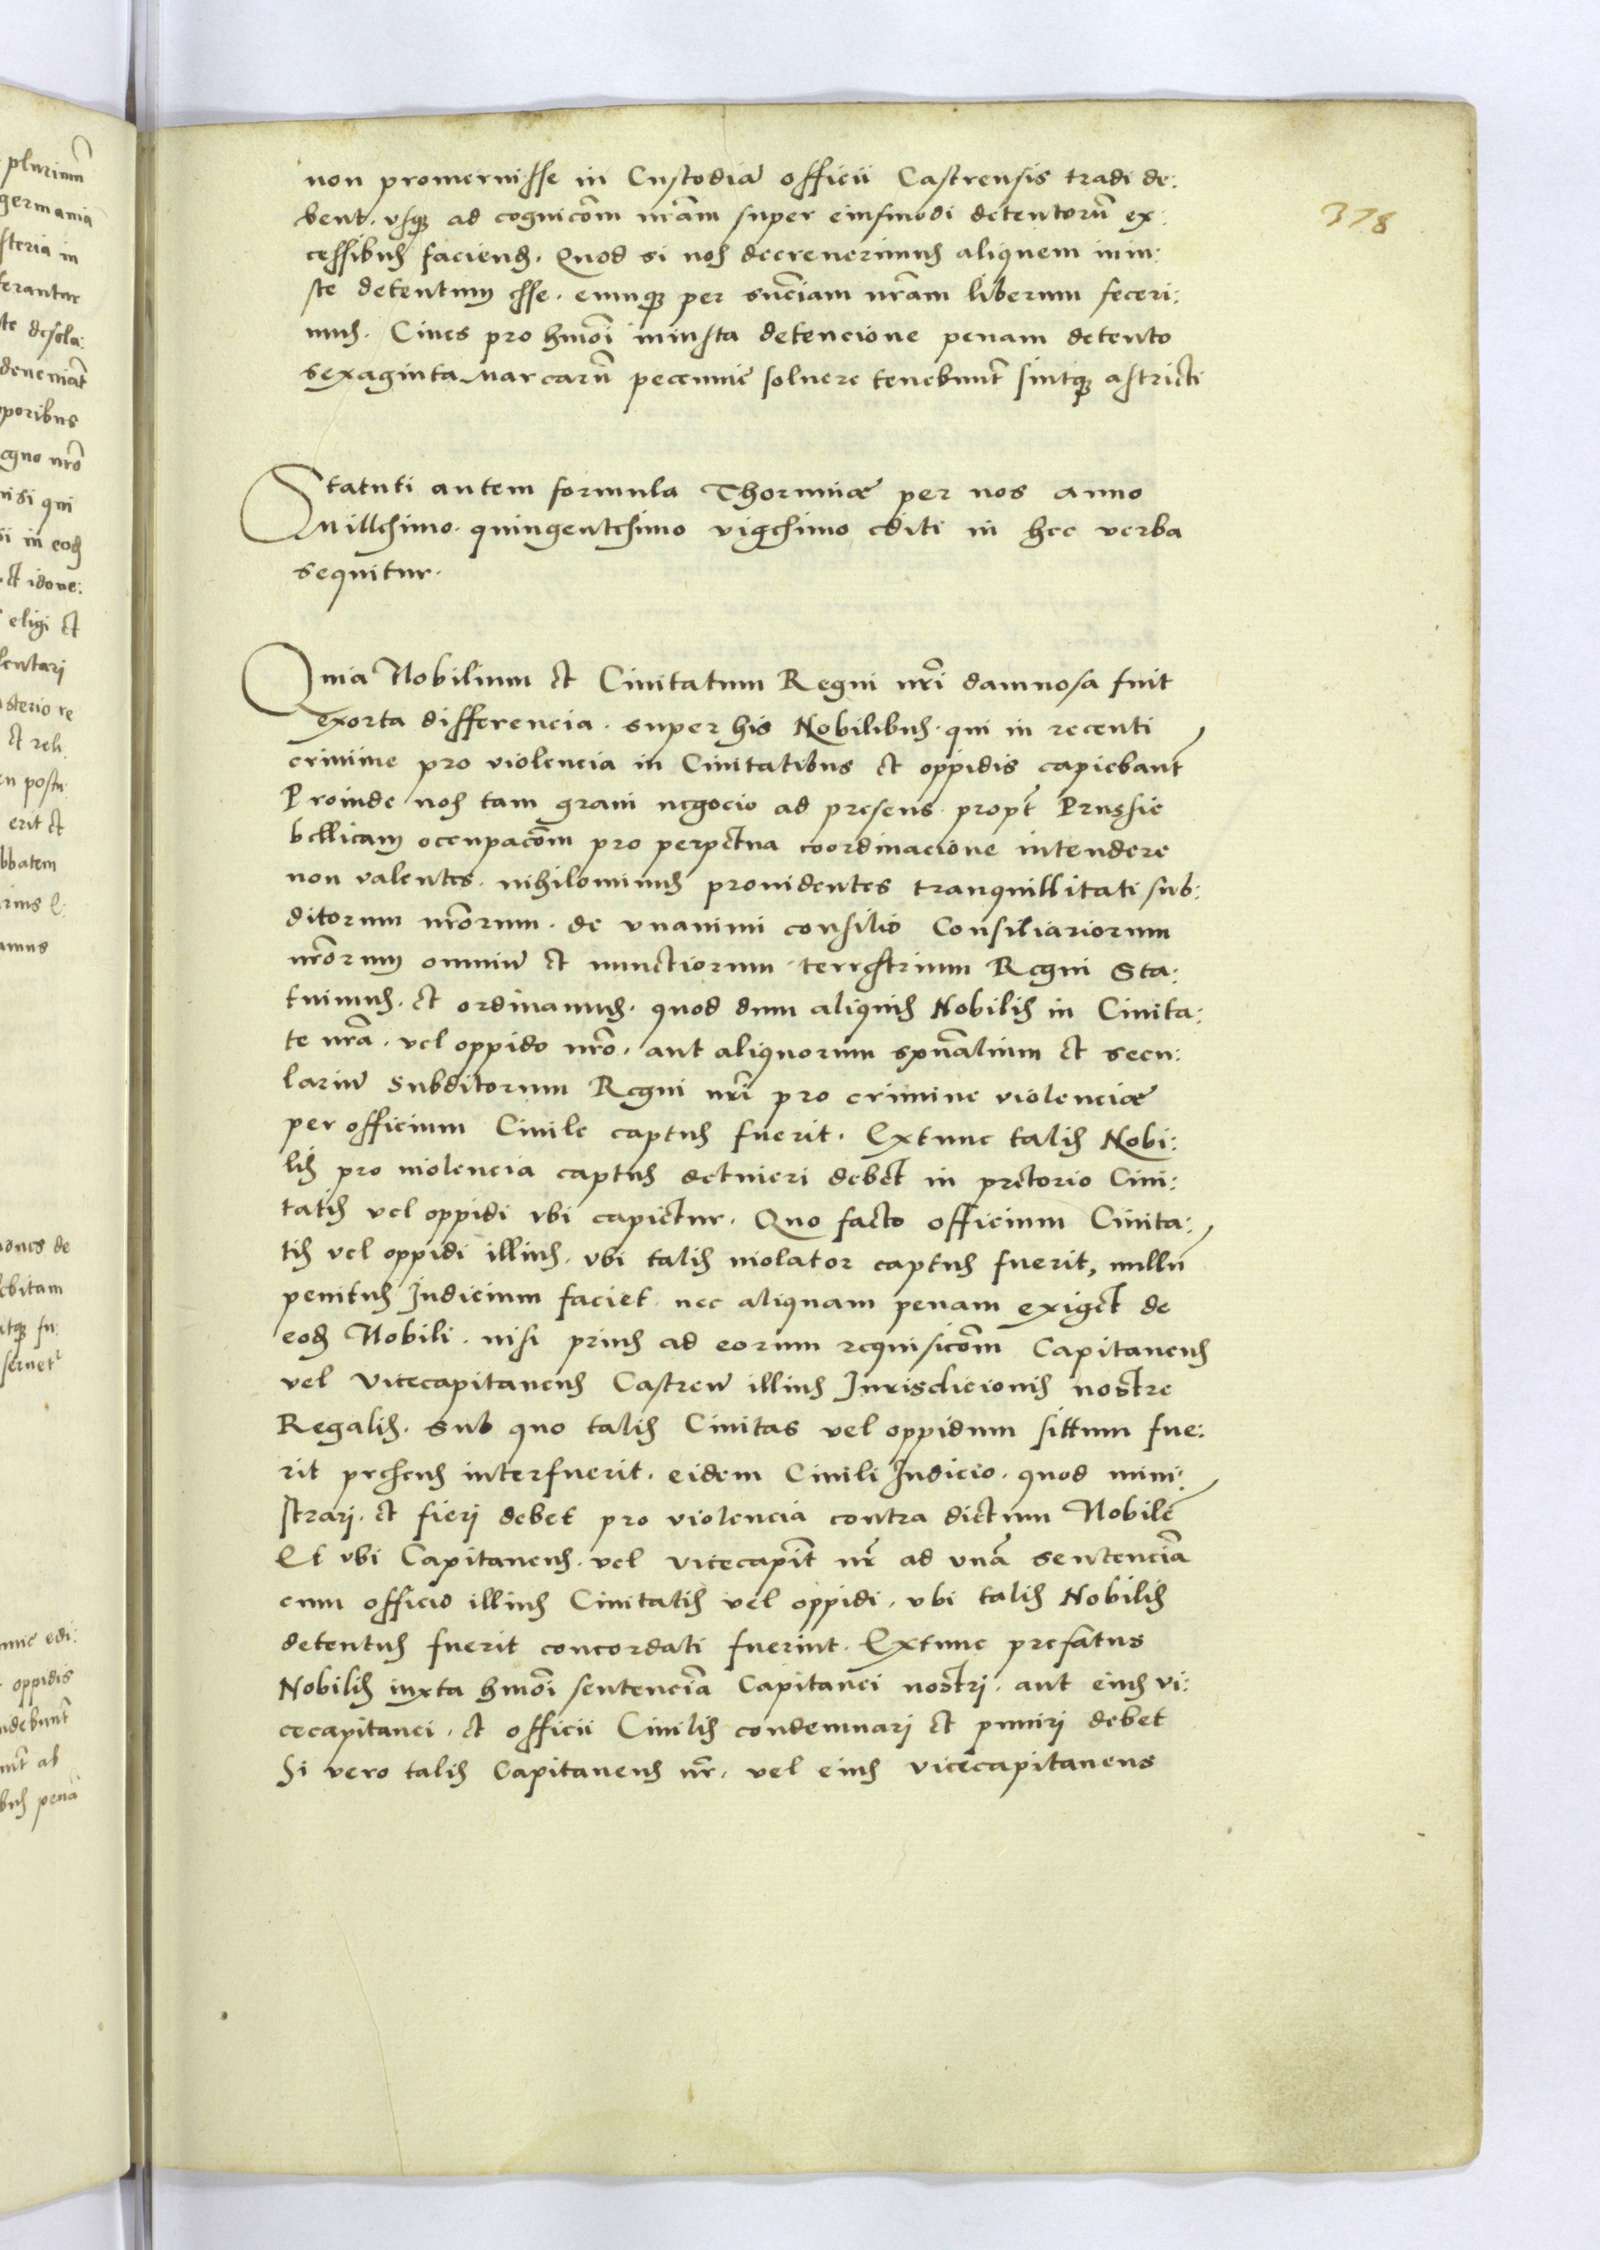 378
non promeruisse in Custodiã officii Castrensis tradi de:
bent. vsq3 ad cognicõm nrãm super eiusmodi detentorũ ex:
cessibus faciend. Quod si nos decreuerimus aliquem iniu:
ste detentum esse. eumq3 per snẽciam nrãm liberum feceri:
mus. Ciues pro hmõi iniusta detencione penam detento
sexaginta Marcarũ pecunie soluere tenebunt̃ sintq3 astricti
Statuti autem formula Thoruniæ per nos anno
Millesimo. quingentesimo vigesimo editi in hec verba
sequitur.
Quia Nobilium et Ciuitatum Regni nrĩ damnosa fuit
exorta differencia. super his Nobilibus. qui in recenti
crimine pro violencia in Ciuitatibus et oppidis capiebant̃
Proinde nos tam graui negocio ad presens propt̃ Prussie
bellicam occupacõm pro perpetua coordinacione intendere
non valentes. nihilominus prouidentes tranquillitati sub:
ditorum nrõrum. de vnanimi consilio Consiliariorum
nrõrum omniũ et nunctiorum terrestrium Regni Sta:
tuimus. et ordinamus. quod dum aliquis Nobilis in Ciuita:
te nrã. vel oppido nrõ. aut aliquorum spũalium et secu:
lariũ subditorum Regni nrĩ pro crimine violenciæ
per officium Ciuile captus fuerit. Extunc talis Nobi:
lis pro uiolencia captus detineri debet in pretorio Ciui:
tatis vel oppidi vbi capietur. Quo facto officium Ciuita:
tis vel oppidi illius. vbi talis uiolator captus fuerit, nullũ
penitus Judicium faciet. nec aliquam penam exiget de
eod Nobili. nisi prius ad eorum requisicõm Capitaneus
vel Vicecapitaneus Castreñ illius Jurisdicionis nostre
Regalis. sub quo talis Ciuitas vel oppidum sittum fue:
rit presens interfuerit. eidem Ciuili Judicio. quod mini:
strari. et fieri debet pro violencia contra dictum Nobilẽ
Et vbi Capitaneus. vel vicecapit̃ nr̃ ad vnã sentenciã
cum officio illius Ciuitatis vel oppidi. vbi talis Nobilis
detentus fuerit concordati fuerint. Extunc prefatus
Nobilis iuxta hmõi sentenciã Capitanei nostri. aut eius vi:
cecapitanei. et officii Ciuilis condemnari et puniri debet
Si vero talis Capitaneus nr̃. vel eius vicecapitaneus